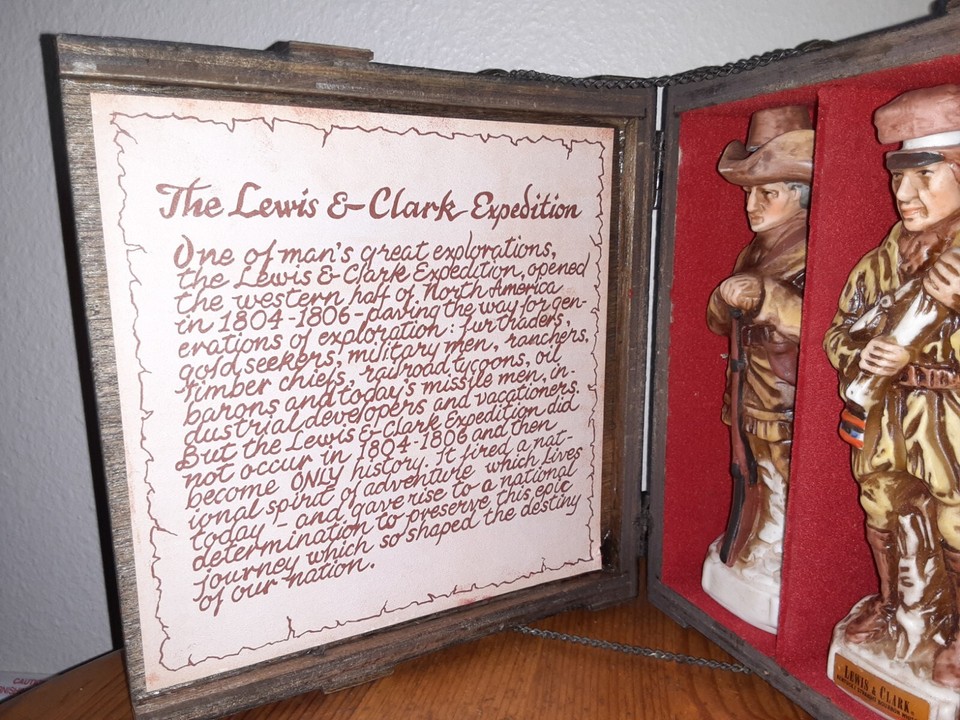 The Lewis & Clark Expedition
One of man's great explorations,
the Lewis & Clark Expedition, opened
the western half of North America
in 1804-1806 - paving the way for gen-
erations of exploration: fur traders,
gold seekers, military men, ranchers,
timber chiefs, railroad tycoons, oil
barons and today's missile men, in-
dustrial developers and vacationers.
But the Lewis & Clark Expedition did
not occur in 1804-1806 and then
become ONLY history. It fired a nat-
ional spirit of adventure which lives
today - and gave rise to a national
determination to preserve this epic
journey which so shaped the destiny
of our nation.
LEWIS & CLARK